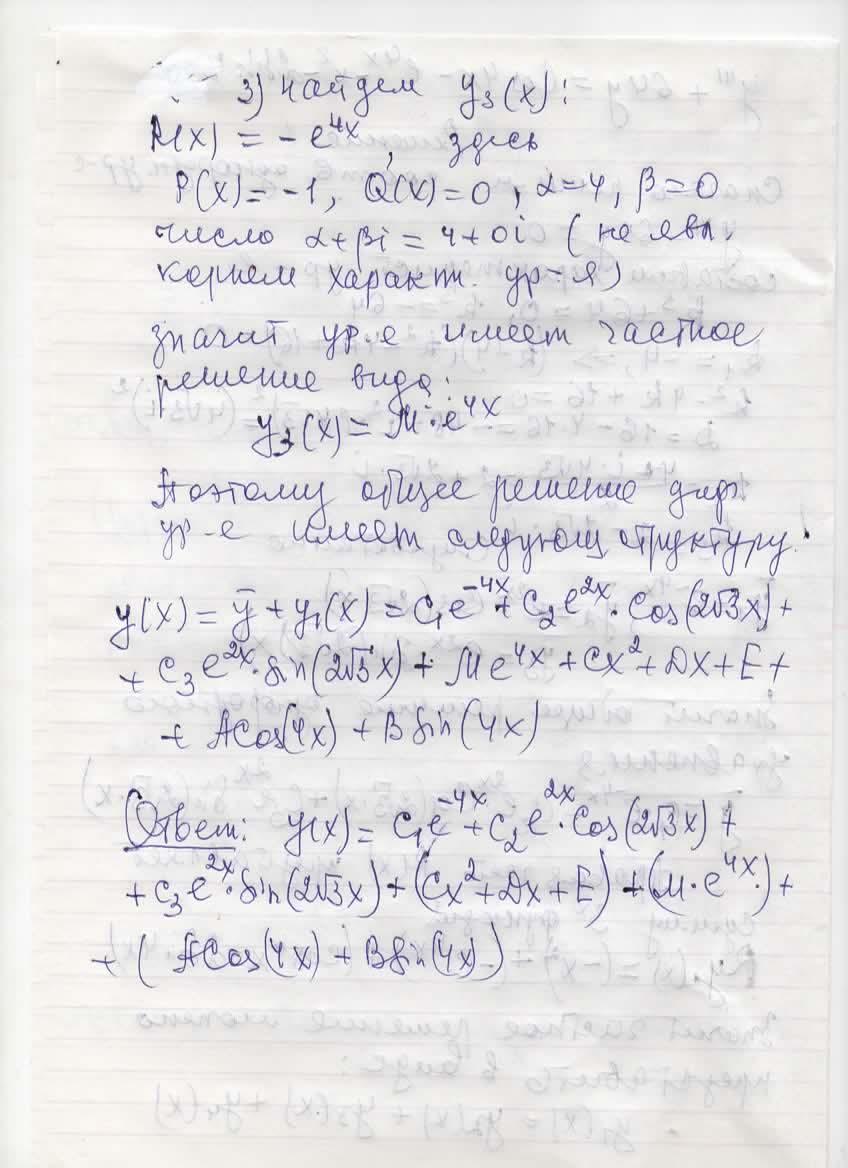 3) найдем y₃(x):
R(x) = -e^{4x}, здесь
P(x) = -1, Q(x) = 0, α = 4, β = 0
число α+βi = 4+0i (не явл.
корнем характ. ур-я)
значит ур-е имеет частное
решение вида:
y₃(x) = M·e^{4x}
Поэтому общее решение диф
ур-е имеет следующ структуру:
y(x) = ȳ + y₁(x) = C₁e^{-4x} + C₂e^{2x}·cos(2√3x) +
+ C₃e^{2x}·sin(2√3x) + Me^{4x} + Cx² + Dx + E +
+ Acos(4x) + Bsin(4x)
Ответ: y(x) = C₁e^{-4x} + C₂e^{2x}·cos(2√3x) +
+ C₃e^{2x}·sin(2√3x) + (Cx² + Dx + E) + (M·e^{4x}) +
+ (Acos(4x) + Bsin(4x))